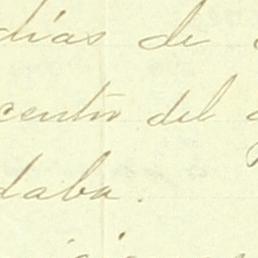 días de
centro del
daba.